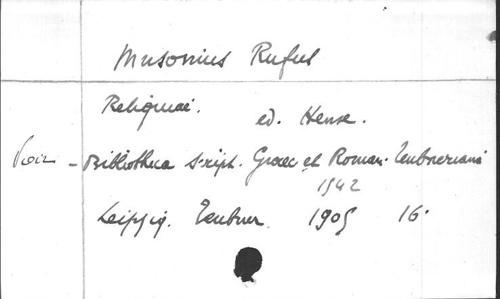 Musonius Rufus
Reliquiae.
ed. Hense.
Voir - Bibliotheca script. Graec et Roman. Teubneriana
1542
Leipzig. Teubner. 1905 16°